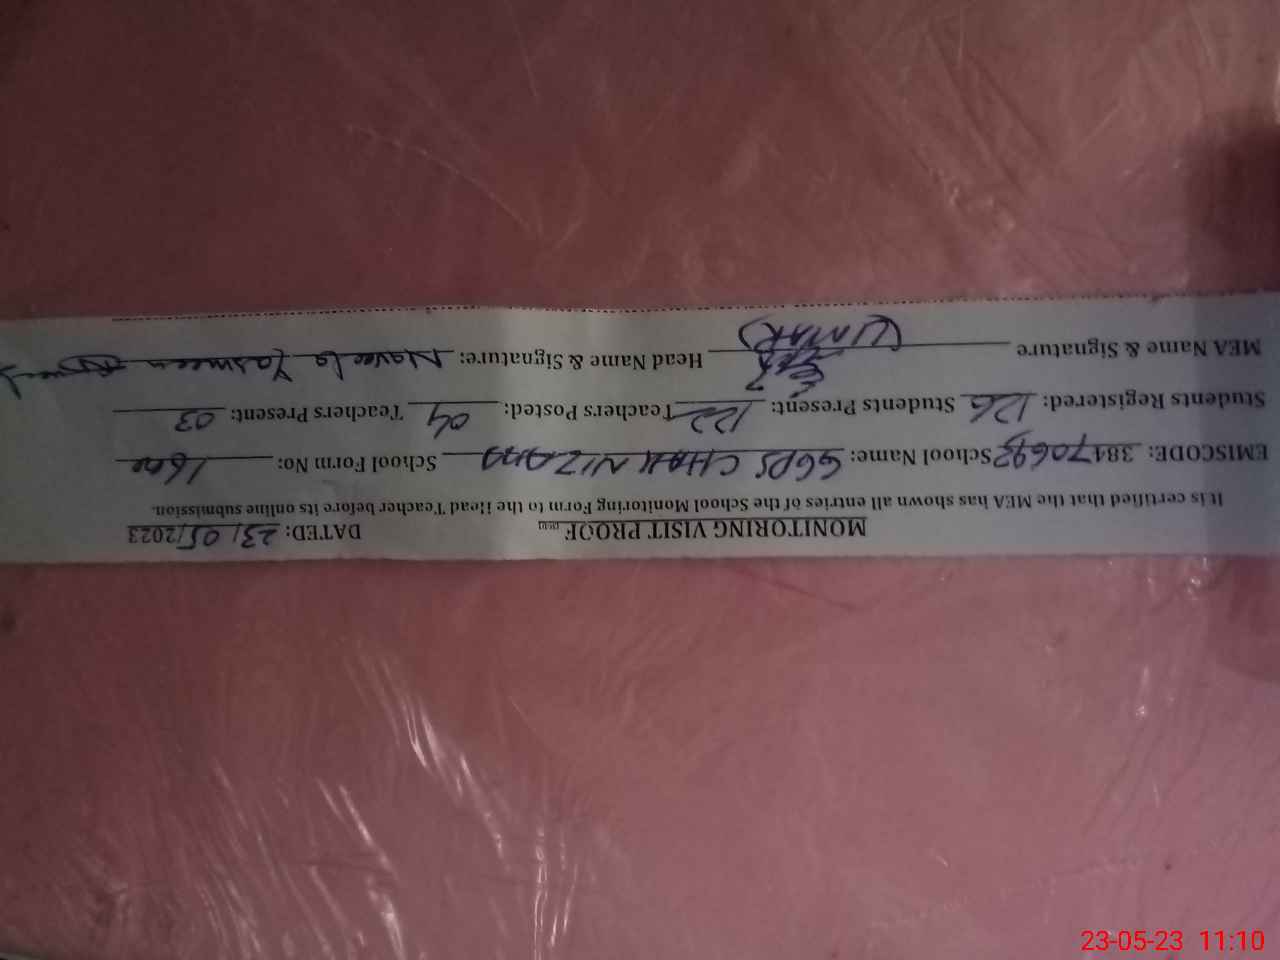 MONITORING VISIT PROOF DATED: 23/05/2023
It is certified that the MEA has shown all entries of the School Monitoring Form to the Head Teacher before its online submission.
EMISCODE: 38470693 School Name: GGPS CHAK NIZAM School Form No:
Students Registered: 126 Students Present: 122 Teachers Posted: 04 Teachers Present: 03
MEA Name & Signature (UMAR) Head Name & Signature: Naveela Yasmeen
23-05-23 11:10